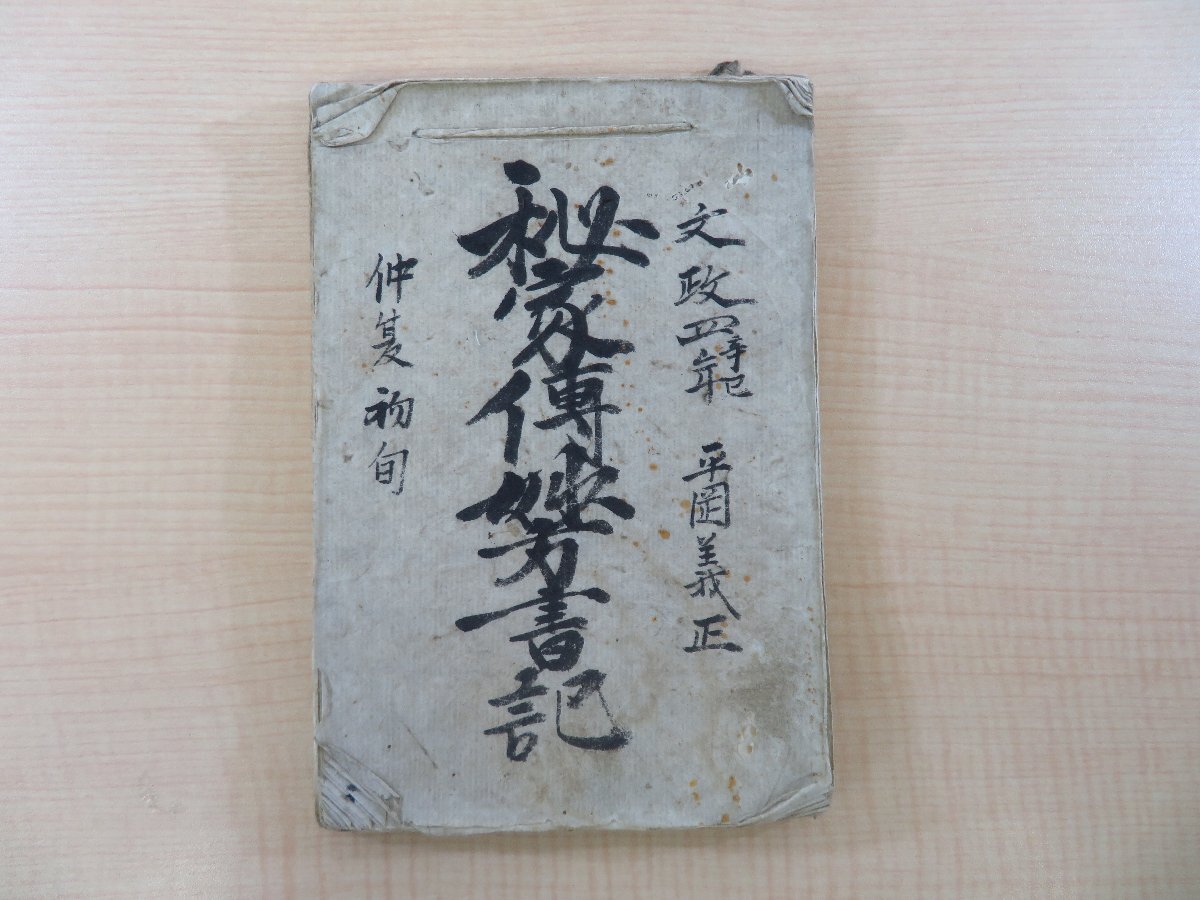 文政四辛巳年 平岡義正
秘家傳妙方書記
仲夏 初旬